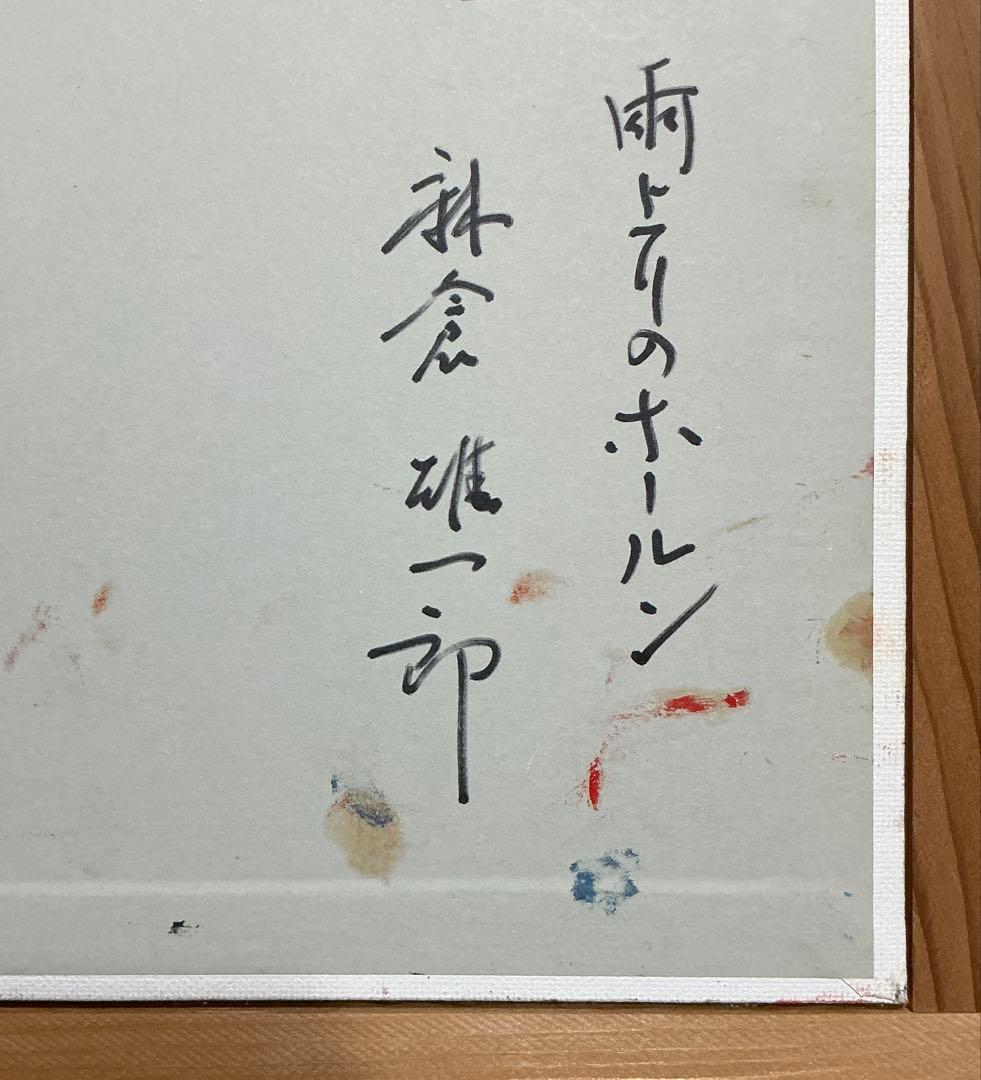 雨上りのホールン
麻倉 雄一郎